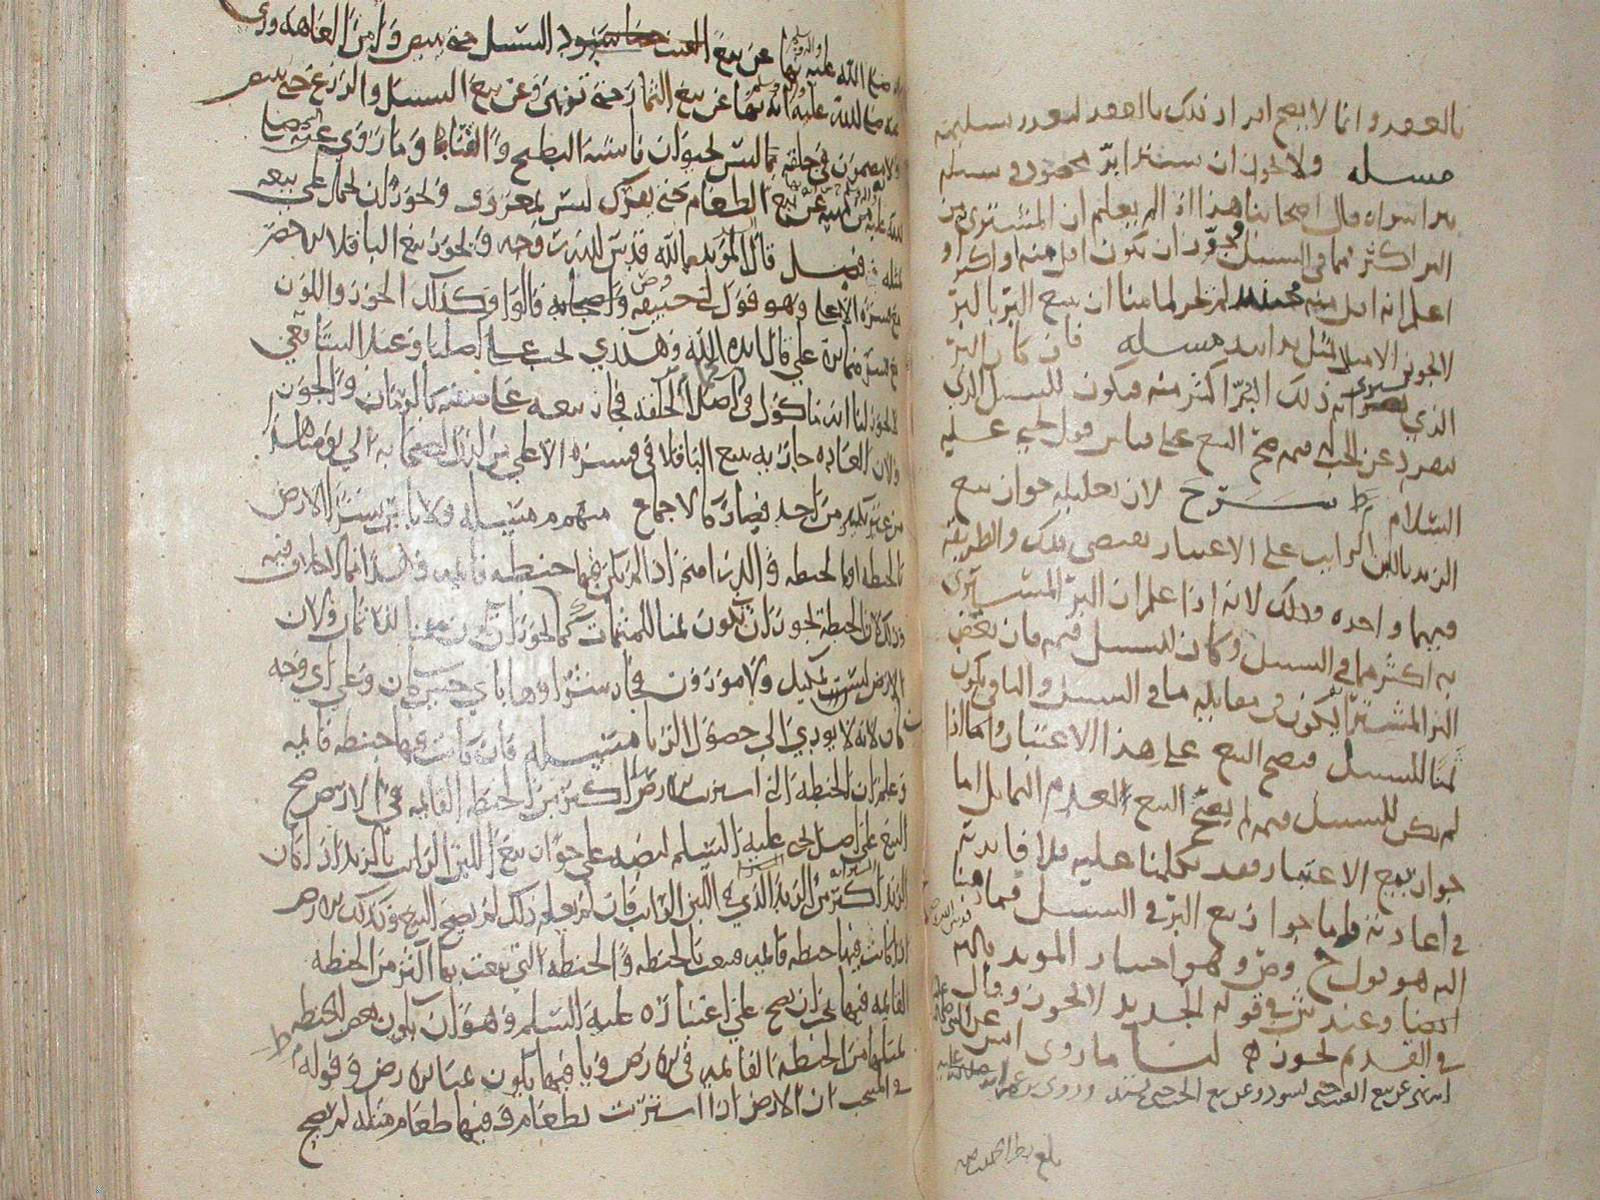 بالعقد وانما لا يصح افراد ذلك بالعقد لتعذر تسليمه
مسله ولا يجوز ان يشترا برّ محصود في سنبله
ببر اسواه قال اصحابنا هذا اذا لم يعلم ان المشترى من
البر اكثر مما في السنبل وجوّز ان يكون اقل منه او اكثر او
اعلم انه اقل منه لم يجز لما بينا ان بيع البرّ بالبرّ
لا يجوز الا مثلا بمثل يدا بيد مسله فان كان البرّ
الذي ذلك البرّ اكثر منه ويكون للسنبل الذي
ينفرد عن الحب قيمه صحّ البيع على قياس قول يحيى عليه
السلام ط شرح لان تعليله جواز بيع
الزبد باللبن الرايب على الاعتبار يقتضي ذلك والطريقه
فيهما واحده وذلك لانه اذا علم ان البرّ المشترى
به اكثر مما في السنبل وكان للسنبل قيمه فان بعض
البر المشترا يكون في مقابله ما في السنبل والباقي يكون
ثمنا للسنبل فيصح البيع على هذا الاعتبار واما اذا
لم يكن للسنبل قيمه لم يصحّ البيع لعدم التماثل اما
جواز بيع الاعتبار فقد تكلمنا عليه فلا فايدة
في اعادته واما جواز بيع البرّ في السنبل فما ذهبنا
اليه هو قول ح وص وهو اختيار المويد بالله
ايضا وعند ش في قوله الجديد لا يجوز وقال
في القديم يجوز لنا ما روى انس عن النبي صلى الله عليه
انه نهى عن بيع العنب حتى يسود وعن بيع الحب حتى يشتد وروى
صلى الله عليه واله وسلم نها عن بيع العنب السنبل حتى يبيض ويامن العاهه وروي
عنه صلى الله عليه انه نها عن بيع الثمار حتى تزهى وعن بيع السنبل والزرع حتى يبيض
ولانه مضمون في خلقته مما ليس بحيوان فاشبه البطيخ والقثا وما روي عنه صلى
الله عليه من نهيه عن بيع الطعام حتى يفرك ليس بمعروف ويجوز ان يحمل على بيعه
بمثله فصل قال المويد بالله قدس الله روحه ويجوز بيع الباقلا الاخضر
مع قشره الاعلا وهو قول ابي حنيفه واصحابه قالوا وكذلك الجوز واللوز
على قال ايده الله وهذا عندي يجب على اصلنا وعند الشافعي
لا يجوز لنا انه ماكول في اصل الخلقه فجاز بيعه على صفته كالرمان والجوز
ولان العاده جاريه ببيع الباقلا في قشره الاعلى من لدن الصحابه الى يومنا هذا
من غير نكير من احد فصار كالاجماع منهم مسئله ولا باس بشرا الارض
بالحنطه اوبالحنطه والدراهم اذا لم يكن فيها حنطه قايمه وهذا مما لا خلاف فيه
وذلك لان الحنطه يجوز ان تكون ثمنا للمثمنات كما يجوز ان تكون مثمنا للاثمان ولان
الارض ليست بمكيل ولا موزون فجاز شراوها باي جنس كان وعلى اي وجه
كان لانه لا يودي الى حصول الربا مسئله فان كانت فيها حنطه قايمه
وعلم ان الحنطه التي اشترى بها الارض اكثر من الحنطه القايمه في الارض صح
البيع على اصل يحيى عليه السلم لنصه على جواز بيع اللبن الرايب بالزبد اذا كان
الزبد اكثر من الزبد الذي في اللبن الرايب فان لم يعلم ذلك لم يصح البيع وكذلك الارض
اذا كانت فيها حنطه قايمه فبيعت بالحنطه والحنطه التي بيعت بها اكثر من الحنطه
القايمه فيها يجب ان يصح على اعتباره عليه السلم وهو ان يكون بعض الحنطه
بمثلها من الحنطه القايمه في الارض وباقيها يكون ثمنا للارض وقوله ط
في المنتخب ان الارض اذا اشتريت بطعام وفيها طعام مثله لم يصح